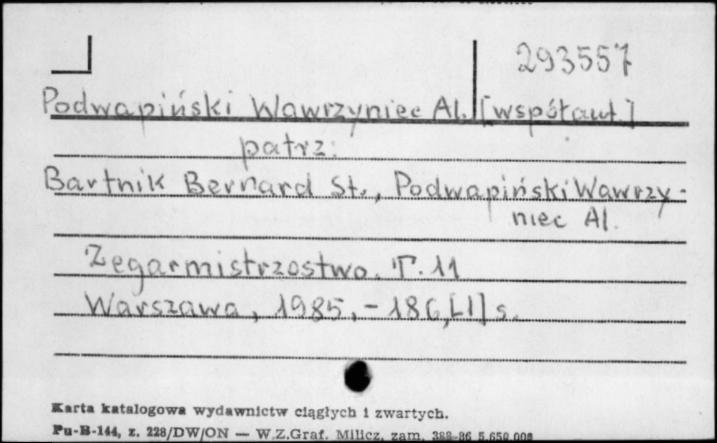 293557
Podwapiński Wawrzyniec Al. [współaut.]
patrz:
Bartnik Bernard St., Podwapiński Wawrzy-
niec Al.
Zegarmistrzostwo. T. 11
Warszawa, 1985. - 186, [1] s.
Karta katalogowa wydawnictw ciągłych i zwartych.
Pu-B-144, z. 228/DW/ON — W.Z.Graf. Milicz, zam. 388-86 5.650.000